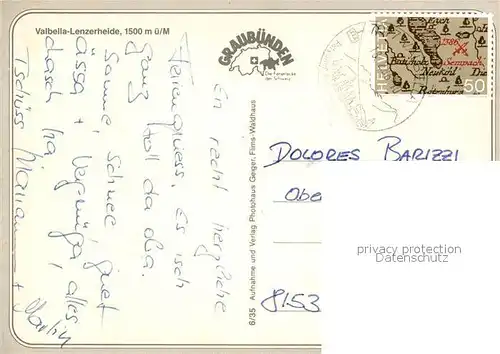 Valbella-Lenzerheide, 1500 m ü/M
GRAUBÜNDEN
Die Ferienecke
der Schweiz
HELVETIA
1386
Sempach
50
En recht herzliche
Feriengruess. Es isch
ganz toll da oba.
Sonne, Schnee, guet
ässa + Vegnüga, alles
dasch ha
Tschüss Mariann
+ Martin
6/35 Aufnahme und Verlag Photohaus Geiger, Flims-Waldhaus
DOLORES BARIZZI
Obe
8153
privacy protection